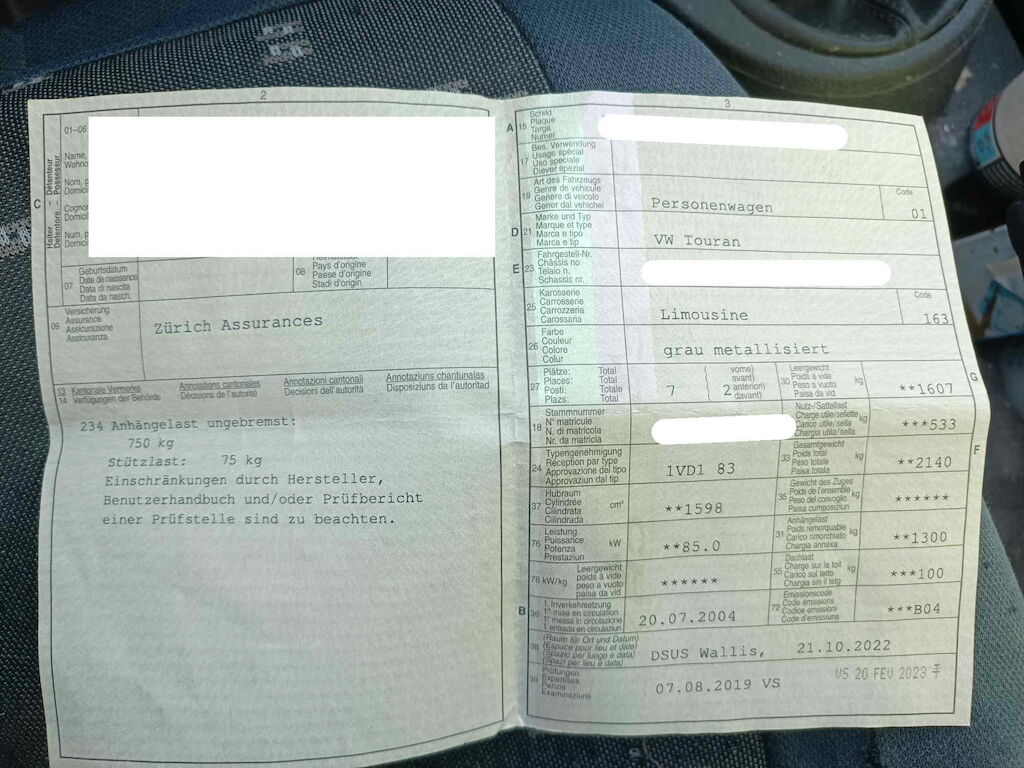 2
01-06
Halter Détenteur
Detentore Possessur
Name,
Wohno
Nom, p
Domici
Cogno
Domici
Num, p
Domici
C
07
Geburtsdatum
Date de naissance
Data di nascita
Data da nasch.
08
Pays d'origine
Paese d'origine
Stadi d'origin
09
Versicherung
Assurance
Assicurazione
Assicuranza
Zürich Assurances
13 Kantonale Vermerke Annotations cantonales Annotazioni cantonali Annotaziuns chantunalas
14 Verfügungen der Behörde Décisions de l'autorité Decisioni dell'autorità Disposiziuns da l'autoritad
234 Anhängelast ungebremst:
750 kg
Stützlast: 75 kg
Einschränkungen durch Hersteller,
Benutzerhandbuch und/oder Prüfbericht
einer Prüfstelle sind zu beachten.
3
A 15
Schild
Plaque
Targa
Numer
17
Bes. Verwendung
Usage spécial
Uso speciale
Diever spezial
19
Art des Fahrzeugs
Genre de véhicule
Genere di veicolo
Gener dal vehichel
Personenwagen
Code
01
D 21
Marke und Typ
Marque et type
Marca e tipo
Marca e tip
VW Touran
E 23
Fahrgestell-Nr.
Châssis no
Telaio n.
Schassis nr.
25
Karosserie
Carrosserie
Carrozzeria
Carossaria
Limousine
Code
163
26
Farbe
Couleur
Colore
Colur
grau metallisiert
27
Plätze: Total
Places: Total
Posti: Totale
Plazs: Total
7
vorne)
avant)
2 anteriori)
davant)
G
30
Leergewicht
Poids à vide
Peso a vuoto
Paisa da vid
kg
**1607
18
Stammnummer
N° matricule
N. di matricola
Nr. da matricla
Nutz-/Sattellast
Charge utile/sellette
Carico utile/sella
Chargia utila/sella
kg
***533
24
Typengenehmigung
Réception par type
Approvazione del tipo
Approvaziun dal tip
1VD1 83
F
33
Gesamtgewicht
Poids total
Peso totale
Paisa totala
kg
**2140
37
Hubraum
Cylindrée
Cilindrata
Cilindrada
cm³
**1598
35
Gewicht des Zuges
Poids de l'ensemble
Peso del convoglio
Paisa cumposiziun
kg
******
76
Leistung
Puissance
Potenza
Prestaziun
kW
**85.0
31
Anhängelast
Poids remorquable
Carico rimorchiato
Chargia annexa
kg
**1300
78 kW/kg
Leergewicht
poids à vide
peso a vuoto
paisa da vid
******
55
Dachlast
Charge sur le toit
Carico sul tetto
Chargia sin il tetg
kg
***100
B 36
1. Inverkehrsetzung
1re mise en circulation
1a messa in circolazione
1. entrada en circulaziun
20.07.2004
72
Emissionscode
Code émissions
Codice emissioni
Code d'emissiuns
***B04
38
(Raum für Ort und Datum)
(Espace pour lieu et date)
(Spazio per luogo e data)
(Spazi per lieu e data)
DSUS Wallis, 21.10.2022
39
Prüfungen
Expertises
Perizie
Examinaziuns
07.08.2019 VS
VS 20 FEV 2023